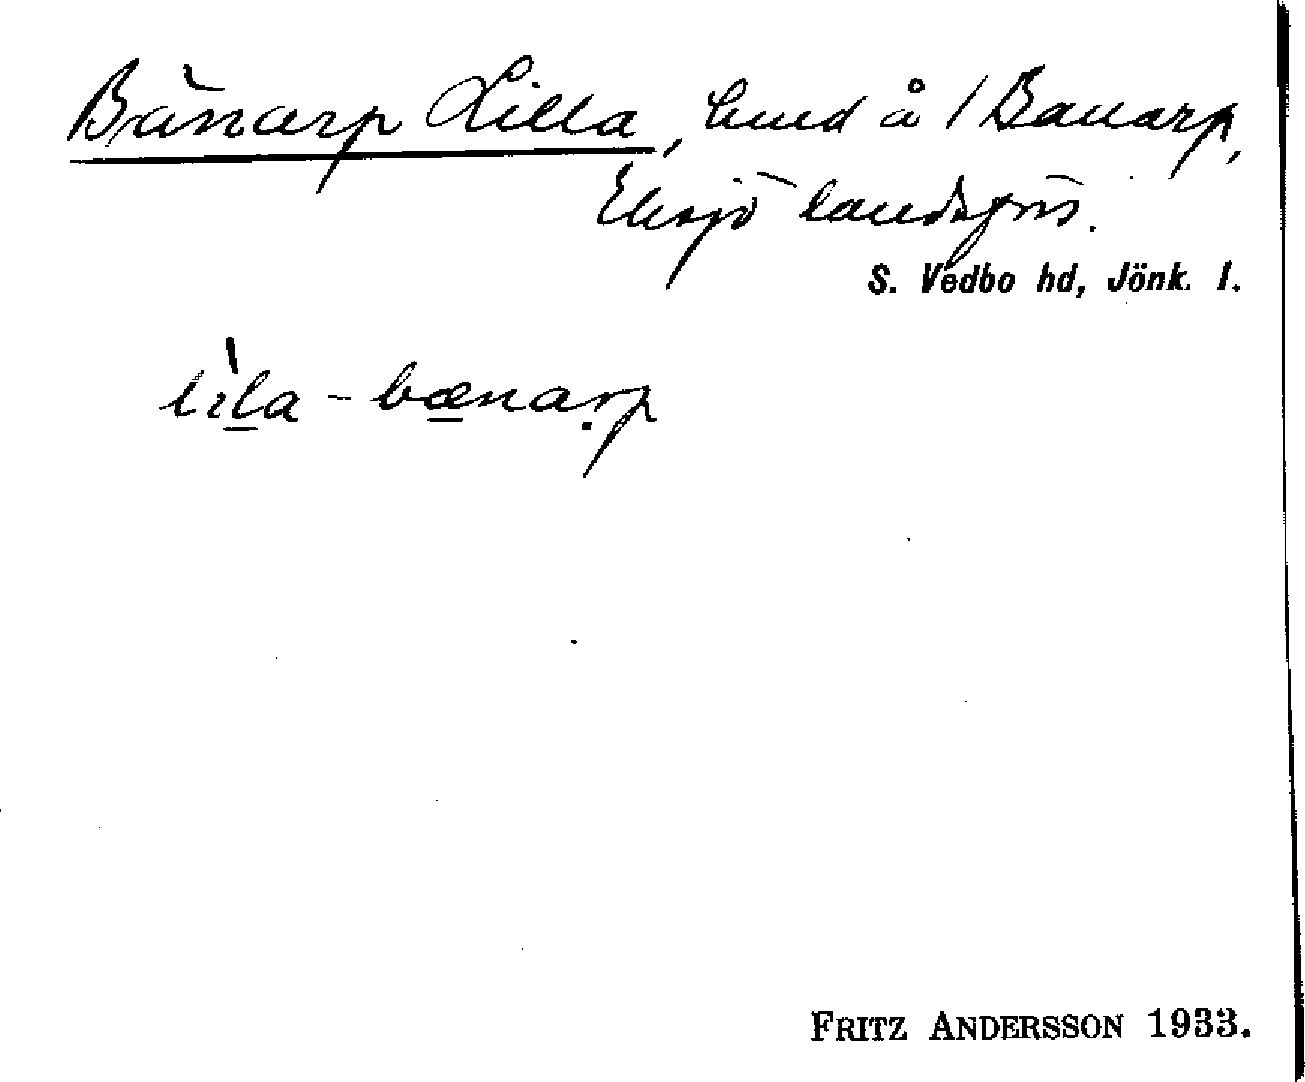 Bänarp Lilla, hmd å 1 Banarp,
Eksjö landsförs.
S. Vedbo hd, Jönk. l.
lìla - bænarp
FRITZ ANDERSSON 1933.